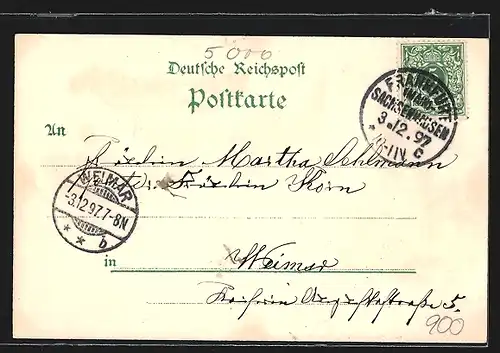 5000
Deutsche Reichspost
Postkarte
FRANKFURT
(MAIN)
SACHSENHAUSEN
3.12.97
11-12V C
An
Fräulein Martha Sehlmann
Fräulein Korn
WEIMAR
-3.12.97.7-8N
* * b
in Weimar
Kaiserin Augustastraße 5.
900